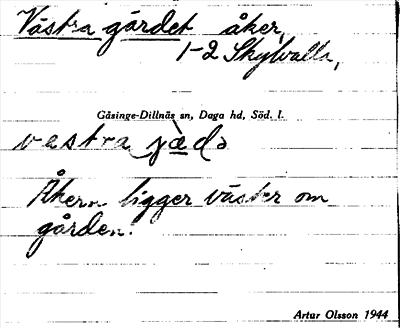 Västra gärdet åker,
1-2 Skyvalla,
Gåsinge-Dillnäs sn, Daga hd, Söd. l.
vestra jædə
Åkern ligger väster om
gården.
Artur Olsson 1944